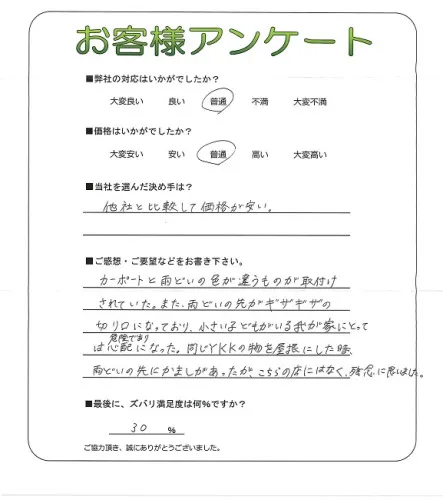 お客様アンケート
■弊社の対応はいかがでしたか？
大変良い 良い 普通 不満 大変不満
■価格はいかがでしたか？
大変安い 安い 普通 高い 大変高い
■当社を選んだ決め手は？
他社と比較して価格が安い。
■ご感想・ご要望などをお書き下さい。
カーポートと雨どいの色が違うものが取付け
されていた。また、雨どいの先がギザギザの
切り口になっており、小さい子どもがいる我が家にとって
危険であり
は心配になった。同じYKKの物を屋根にした時、
雨どいの先にかましがあったが、こちらの店にはなく、残念に思いました。
■最後に、ズバリ満足度は何％ですか？
30 ％
ご協力頂き、誠にありがとうございました。